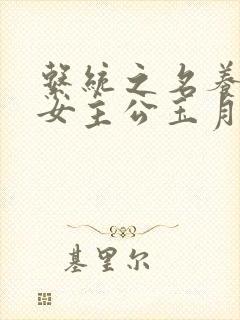 繫統之名養
女主公玉月
基里尔